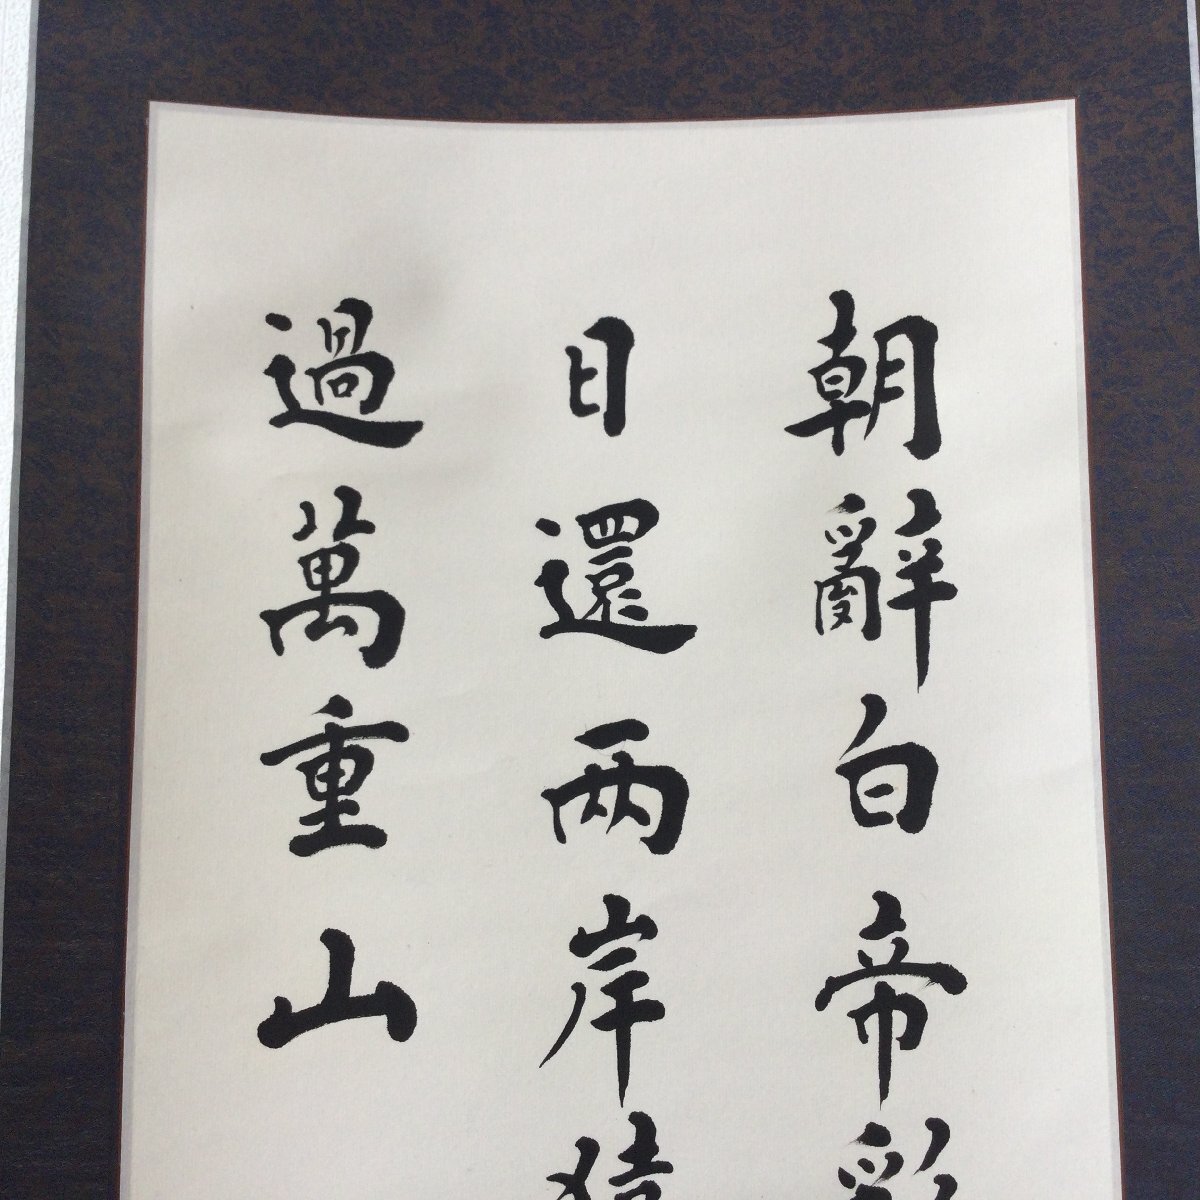 朝辭白帝彩
日還兩岸猿
過萬重山